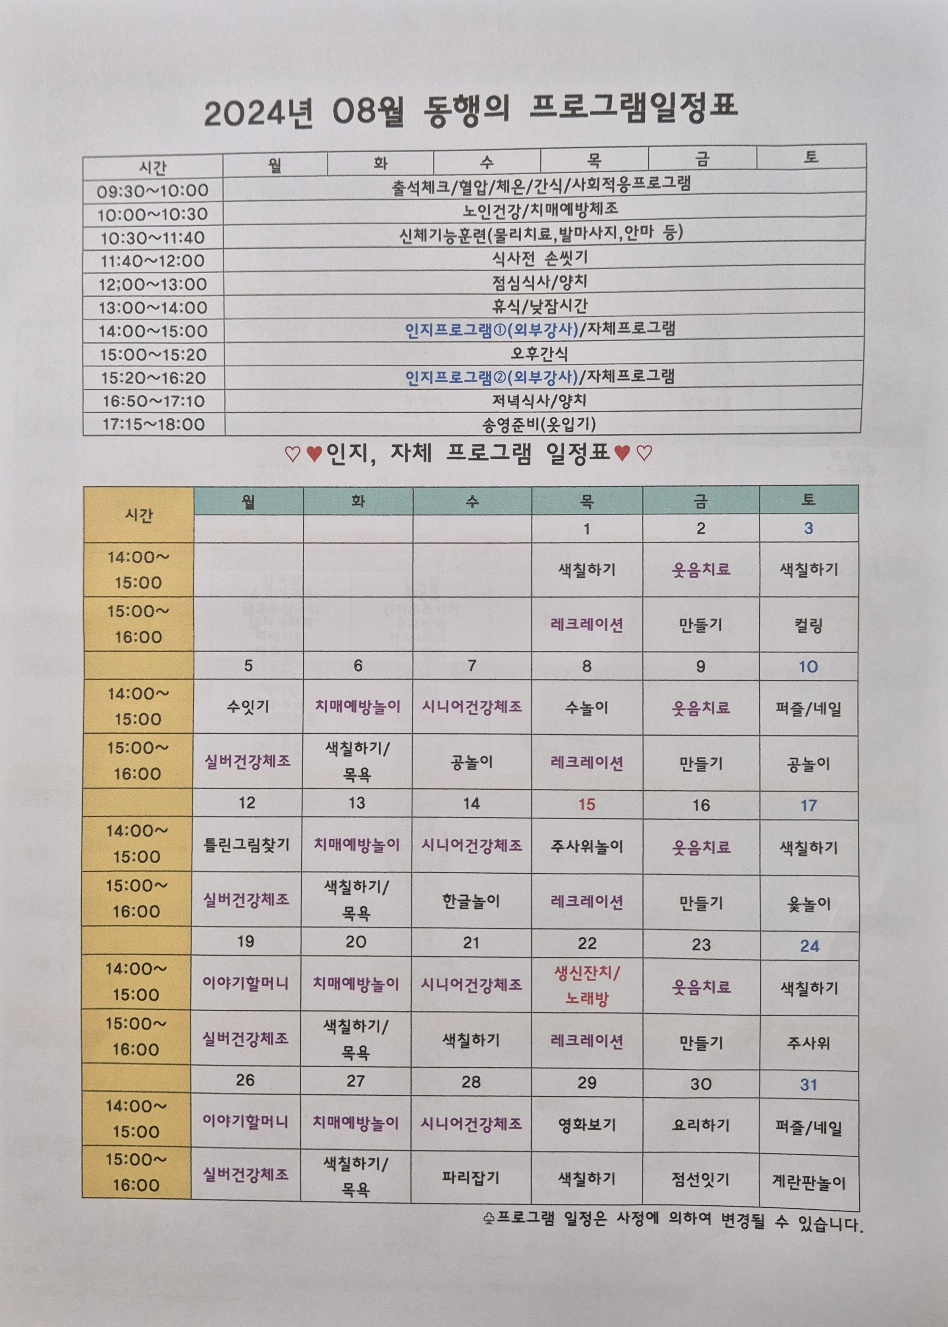 2024년 08월 동행의 프로그램일정표
시간 월 화 수 목 금 토
09:30~10:00 출석체크/혈압/체온/간식/사회적응프로그램
10:00~10:30 노인건강/치매예방체조
10:30~11:40 신체기능훈련(물리치료,발마사지,안마 등)
11:40~12:00 식사전 손씻기
12;00~13:00 점심식사/양치
13:00~14:00 휴식/낮잠시간
14:00~15:00 인지프로그램①(외부강사)/자체프로그램
15:00~15:20 오후간식
15:20~16:20 인지프로그램②(외부강사)/자체프로그램
16:50~17:10 저녁식사/양치
17:15~18:00 송영준비(옷입기)
♡♥인지, 자체 프로그램 일정표♥♡
시간 월 화 수 목 금 토
1 2 3
14:00~
15:00 색칠하기 웃음치료 색칠하기
15:00~
16:00 레크레이션 만들기 컬링
5 6 7 8 9 10
14:00~
15:00 수잇기 치매예방놀이 시니어건강체조 수놀이 웃음치료 퍼즐/네일
15:00~
16:00 실버건강체조 색칠하기/
목욕 공놀이 레크레이션 만들기 공놀이
12 13 14 15 16 17
14:00~
15:00 틀린그림찾기 치매예방놀이 시니어건강체조 주사위놀이 웃음치료 색칠하기
15:00~
16:00 실버건강체조 색칠하기/
목욕 한글놀이 레크레이션 만들기 윷놀이
19 20 21 22 23 24
14:00~
15:00 이야기할머니 치매예방놀이 시니어건강체조 생신잔치/
노래방 웃음치료 색칠하기
15:00~
16:00 실버건강체조 색칠하기/
목욕 색칠하기 레크레이션 만들기 주사위
26 27 28 29 30 31
14:00~
15:00 이야기할머니 치매예방놀이 시니어건강체조 영화보기 요리하기 퍼즐/네일
15:00~
16:00 실버건강체조 색칠하기/
목욕 파리잡기 색칠하기 점선잇기 계란판놀이
♧프로그램 일정은 사정에 의하여 변경될 수 있습니다.